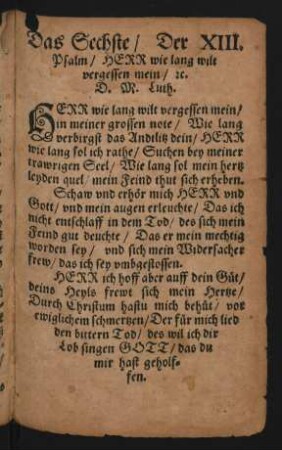 Das Sechste/ Der XIII.
Psalm/ HERR wie lang wilt
vergessen mein/ ꝛc.
D. M. Luth.
HERR wie lang wilt vergessen mein/
in meiner grossen note/ Wie lang
verbirgst das Andlitz dein/ HERR
wie lang sol ich rathe/ Suchen bey meiner
trawrigen Seel/ Wie lang sol mein hertz
leyden quel/ mein Feind thut sich erheben.
Schaw vnd erhör mich HERR vnd
Gott/ vnd mein augen erleuchte/ Das ich
nicht entschlaff in dem Tod/ des sich mein
Feind gut deuchte/ Das er mein mechtig
worden sey/ vnd sich mein Widersacher
frew/ das ich sey vmbgestossen.
HERR ich hoff aber auff dein Güt/
deins Heyls frewt sich mein Hertze/
Durch Christum hastu mich behüt/ vor
ewiglichem schmertzen/ Der für mich lied
den bittern Tod/ des wil ich dir
Lob singen GOTT/ das du
mir hast geholf-
fen.